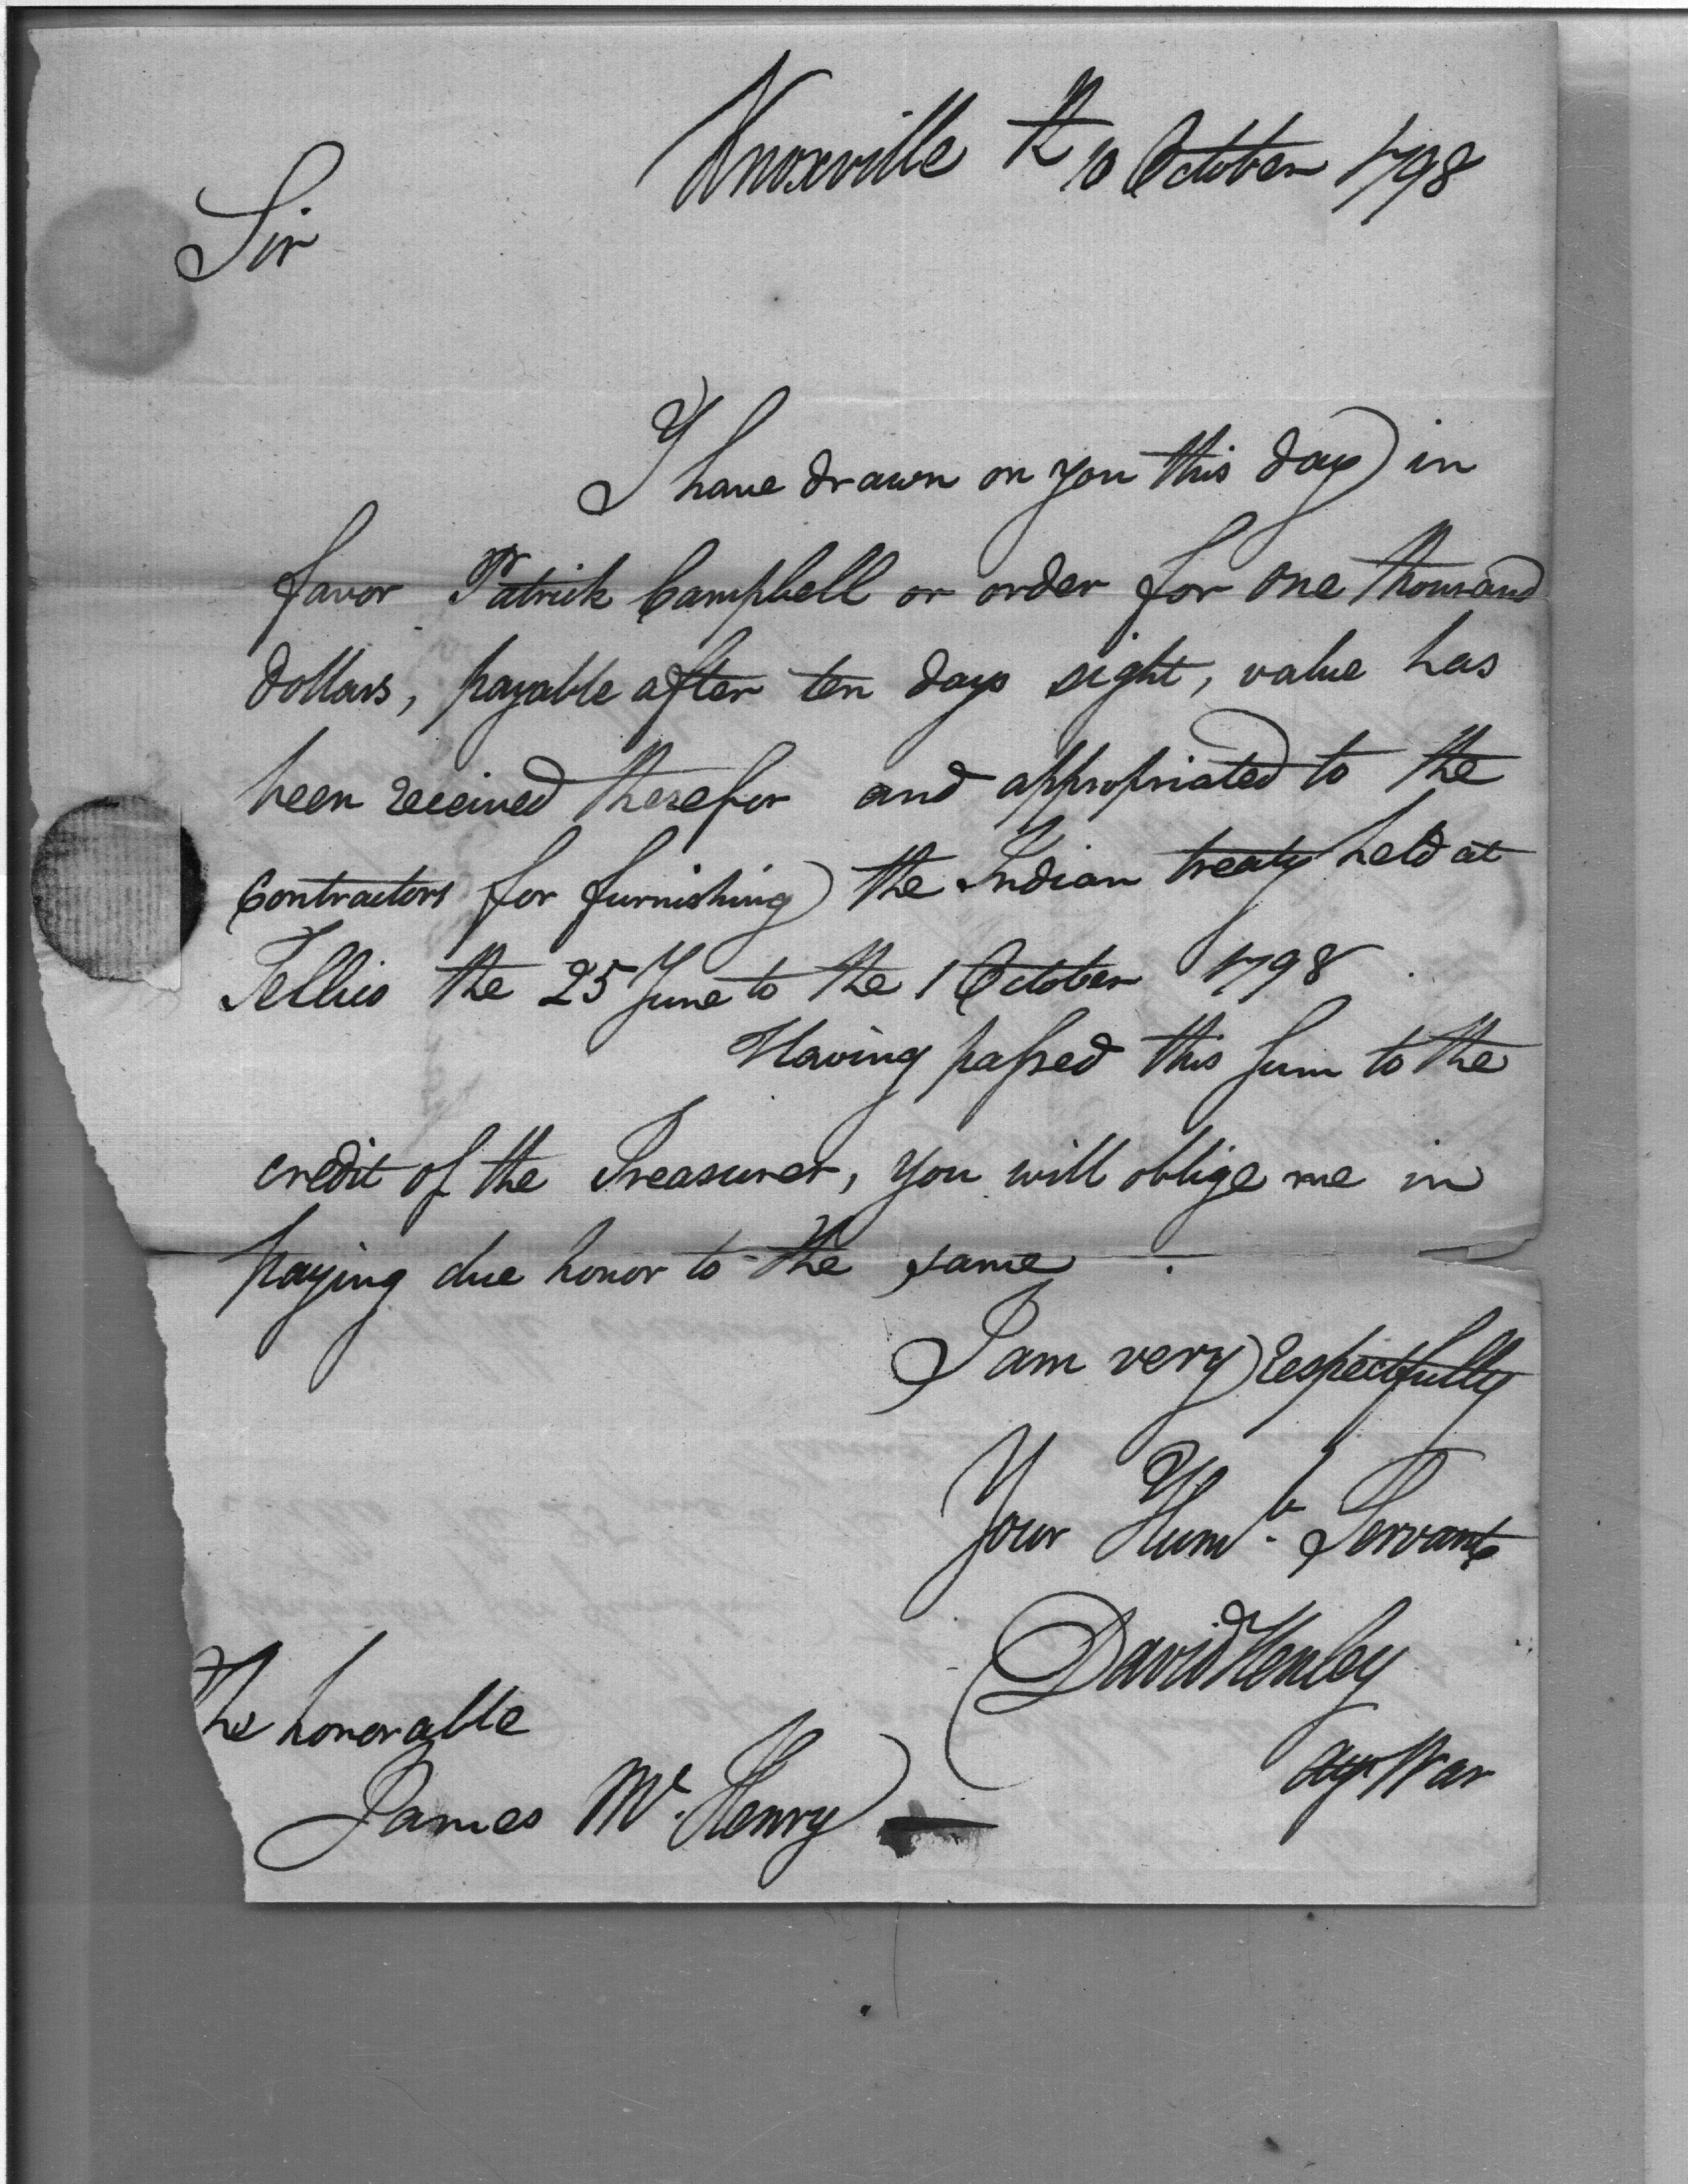 Knoxville the 10 October 1798
Sir
I have drawn on you this day in
favor Patrick Campbell or order for one thousand
dollars, payable after ten days sight, value has
been received therefor and appropriated to the
Contractors for furnishing the Indian treaty held at
Tellico the 25 June to the 1 October 1798
Having passed this sum to the
credit of the Treasurer, you will oblige me in
paying due honor to the same.
I am very respectfully
Your Humb. Servant
David Henley
agt War
The honorable
James McHenry